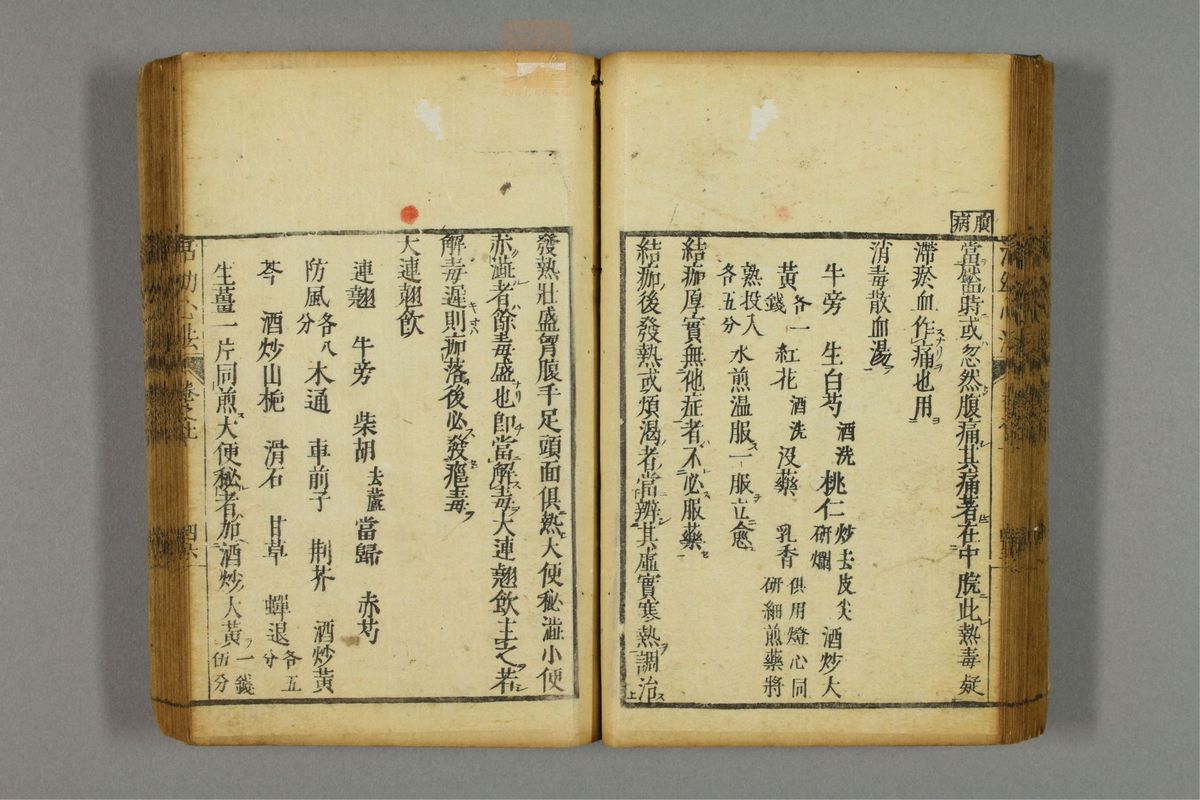 腹病
當靨時或忽然腹痛其痛著在中脘此熱毒疑
滯瘀血作痛也用
消毒散血湯
牛旁 生白芍酒洗 桃仁炒去皮尖研爛 酒炒大
黄各一錢 紅花酒洗 沒藥 乳香俱用燈心同研細煎藥將
熟投入各五分 水煎温服一服立愈
結痂厚實無他症者不必服藥
結痂後發熱或煩渴者當辨其虛實寒熱調治
發熱壯盛胷腹手足頭面俱熱大便秘澁小便
赤澁者餘毒盛也即當解毒大連翹飲主之若
解毒遲則痂落後必發癰毒
大連翹飲
連翹 牛旁 柴胡去蘆 當歸 赤芍
防風各八分 木通 車前子 荆芥 酒炒黄
芩 酒炒山梔 滑石 甘草 蟬退各五分
生薑一片同煎大便秘者加酒炒大黄一錢伍分